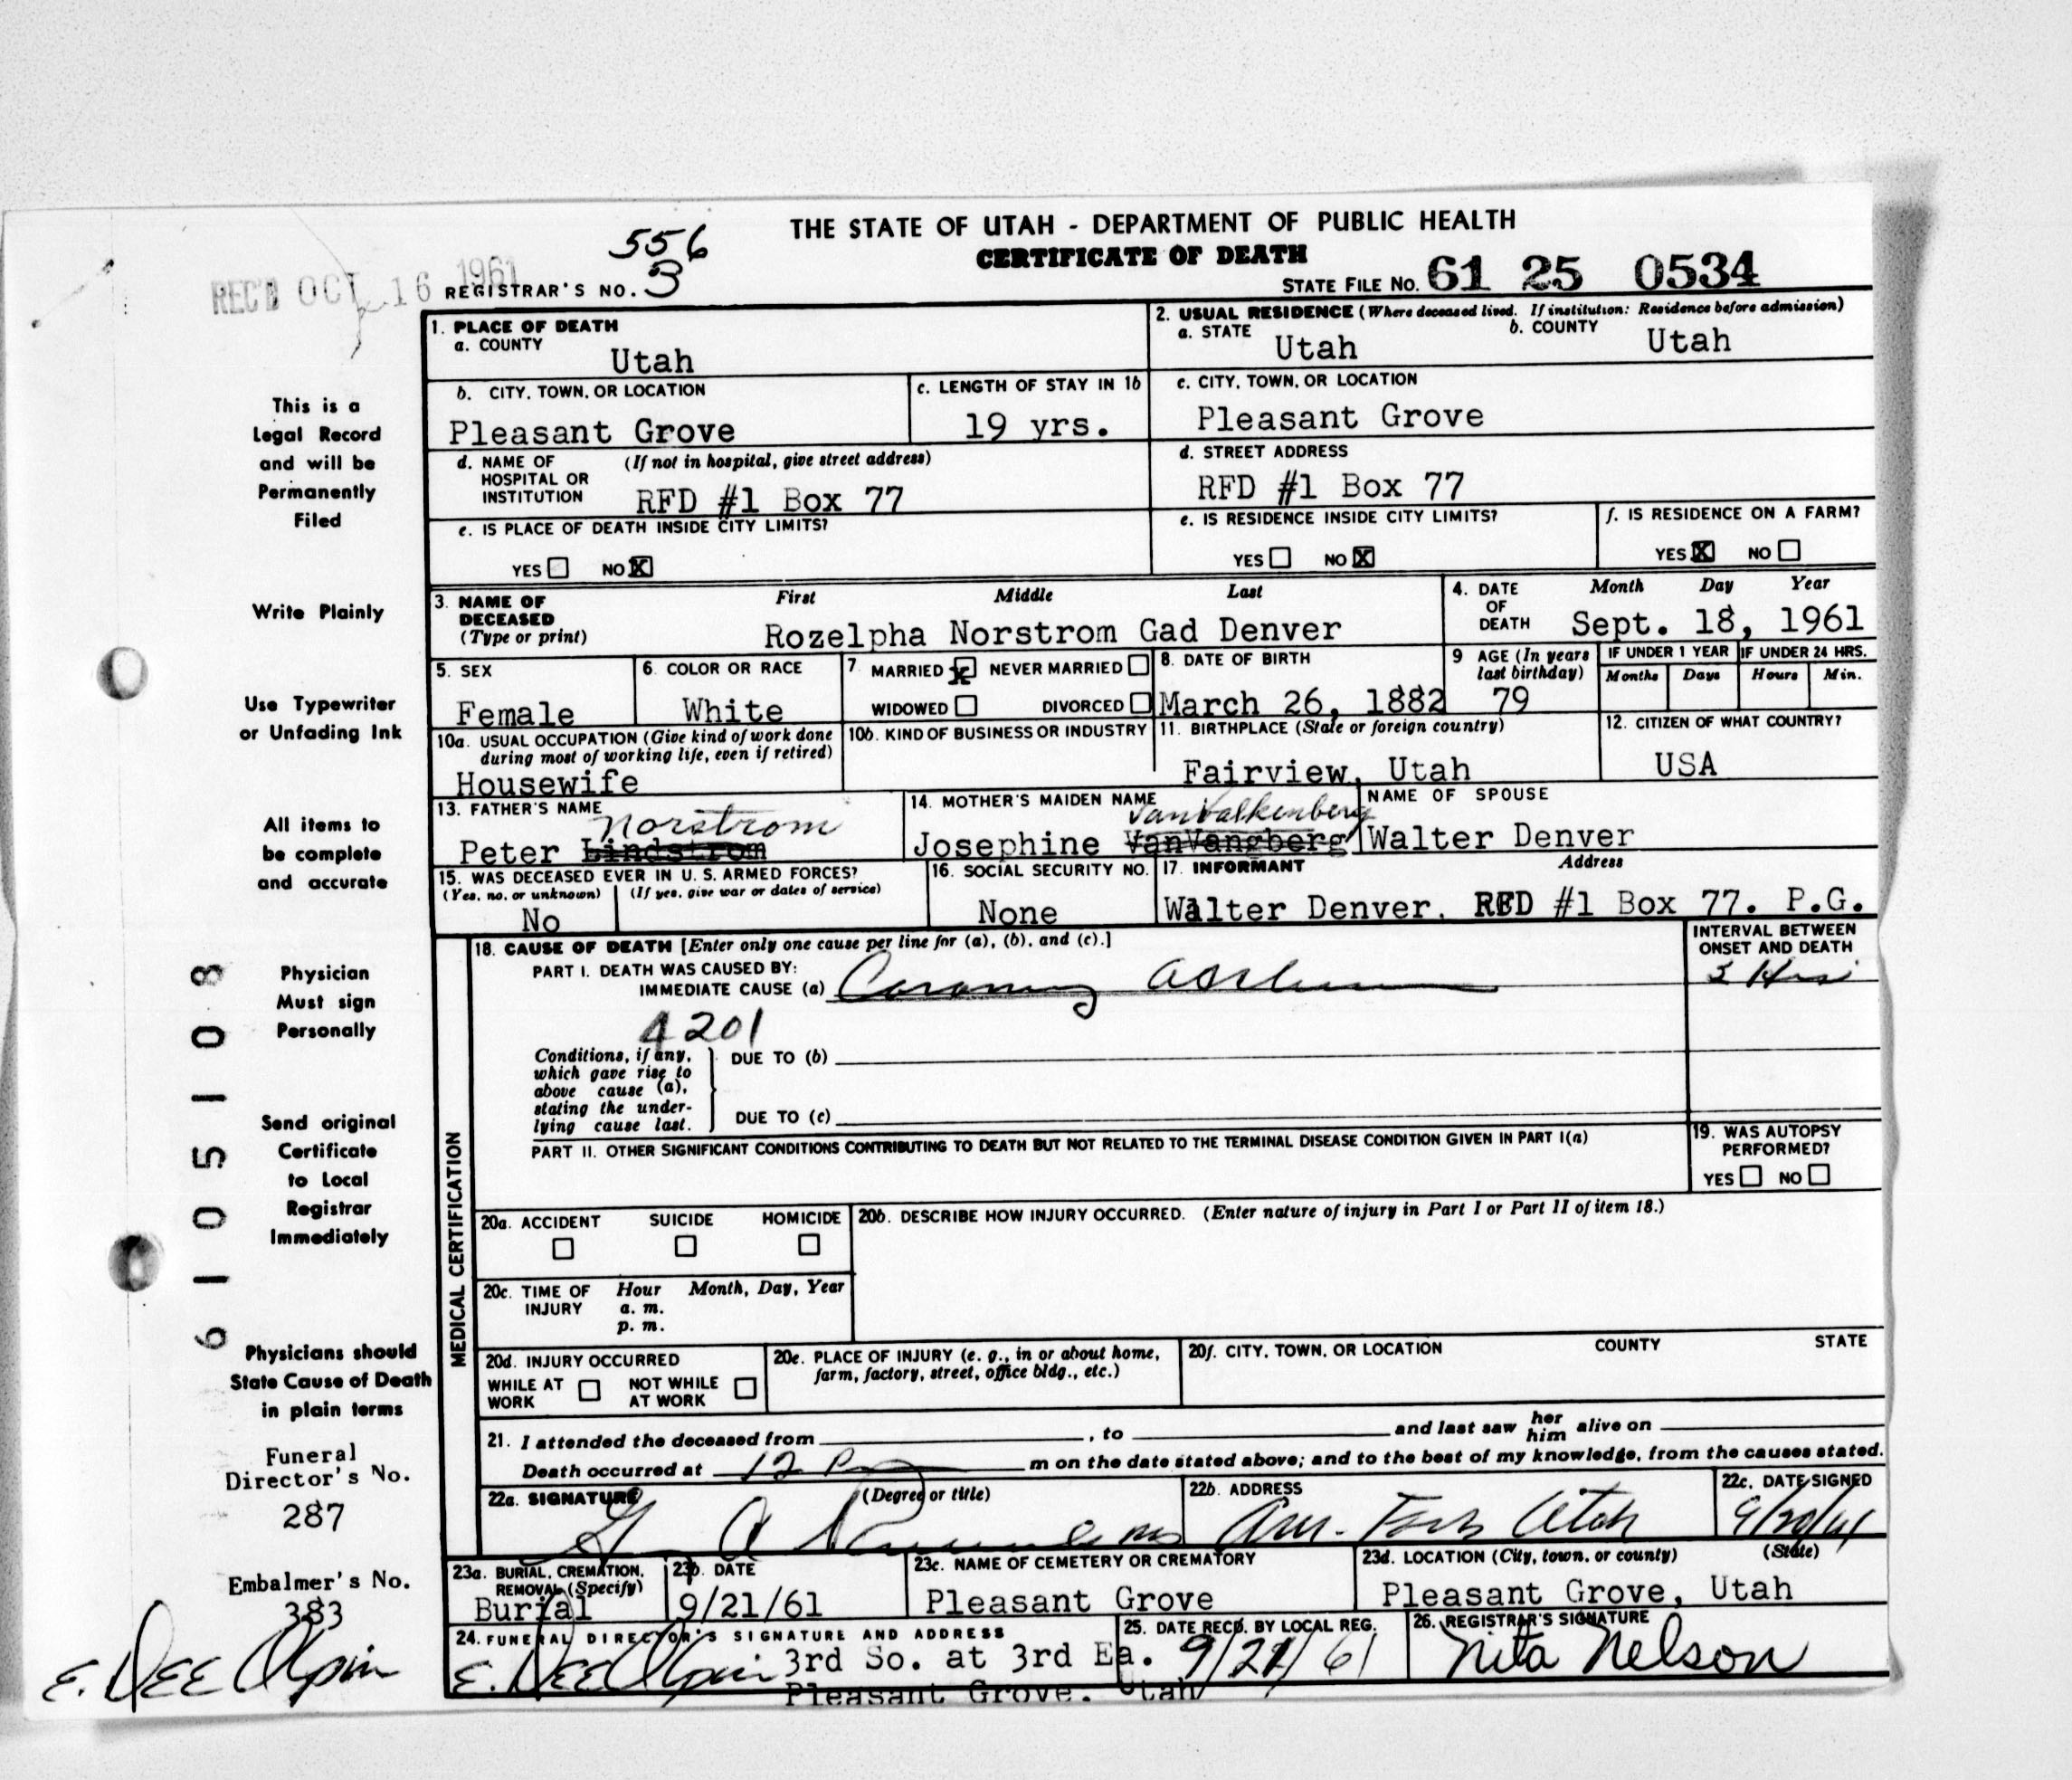 THE STATE OF UTAH - DEPARTMENT OF PUBLIC HEALTH
CERTIFICATE OF DEATH
REC'D OCT 16 1961
556
REGISTRAR'S NO. 3
STATE FILE NO. 61 25 0534
1. PLACE OF DEATH
a. COUNTY
Utah
2. USUAL RESIDENCE (Where deceased lived. If institution: Residence before admission)
a. STATE
Utah
b. COUNTY
Utah
b. CITY, TOWN, OR LOCATION
Pleasant Grove
c. LENGTH OF STAY IN 1b
19 yrs.
c. CITY, TOWN, OR LOCATION
Pleasant Grove
d. NAME OF HOSPITAL OR INSTITUTION
(If not in hospital, give street address)
RFD #1 Box 77
d. STREET ADDRESS
RFD #1 Box 77
e. IS PLACE OF DEATH INSIDE CITY LIMITS?
YES NO X
e. IS RESIDENCE INSIDE CITY LIMITS?
YES NO X
f. IS RESIDENCE ON A FARM?
YES X NO
3. NAME OF DECEASED
(Type or print)
First Middle Last
Rozelpha Norstrom Gad Denver
4. DATE OF DEATH
Month Day Year
Sept. 18, 1961
5. SEX
Female
6. COLOR OR RACE
White
7 MARRIED X NEVER MARRIED
WIDOWED DIVORCED
8. DATE OF BIRTH
March 26, 1882
9 AGE (In years last birthday)
79
IF UNDER 1 YEAR
Months Days
IF UNDER 24 HRS.
Hours Min.
10a. USUAL OCCUPATION (Give kind of work done during most of working life, even if retired)
Housewife
10b. KIND OF BUSINESS OR INDUSTRY
11. BIRTHPLACE (State or foreign country)
Fairview, Utah
12. CITIZEN OF WHAT COUNTRY?
USA
13. FATHER'S NAME
Norstrom
Peter Lindstrom
14. MOTHER'S MAIDEN NAME
VanValkenberg
Josephine VanVangberg
NAME OF SPOUSE
Walter Denver
15. WAS DECEASED EVER IN U. S. ARMED FORCES?
(Yes, no, or unknown) (If yes, give war or dates of service)
No
16. SOCIAL SECURITY NO.
None
17. INFORMANT Address
Walter Denver, RFD #1 Box 77. P.G.
MEDICAL CERTIFICATION
18. CAUSE OF DEATH [Enter only one cause per line for (a), (b), and (c).]
PART I. DEATH WAS CAUSED BY:
IMMEDIATE CAUSE (a) Coronary
INTERVAL BETWEEN ONSET AND DEATH
4201
Conditions, if any, which gave rise to above cause (a), stating the underlying cause last.
DUE TO (b)
DUE TO (c)
PART II. OTHER SIGNIFICANT CONDITIONS CONTRIBUTING TO DEATH BUT NOT RELATED TO THE TERMINAL DISEASE CONDITION GIVEN IN PART I(a)
19. WAS AUTOPSY PERFORMED?
YES NO
20a. ACCIDENT SUICIDE HOMICIDE
20b. DESCRIBE HOW INJURY OCCURRED. (Enter nature of injury in Part I or Part II of item 18.)
20c. TIME OF INJURY
Hour Month, Day, Year
a. m.
p. m.
20d. INJURY OCCURRED
WHILE AT WORK NOT WHILE AT WORK
20e. PLACE OF INJURY (e. g., in or about home, farm, factory, street, office bldg., etc.)
20f. CITY, TOWN, OR LOCATION COUNTY STATE
21. I attended the deceased from , to and last saw her him alive on
Death occurred at 12 P m on the date stated above; and to the best of my knowledge, from the causes stated.
22a. SIGNATURE (Degree or title)
22b. ADDRESS
Am. Fork Utah
22c. DATE SIGNED
9/20/61
23a. BURIAL, CREMATION, REMOVAL (Specify)
Burial
23b. DATE
9/21/61
23c. NAME OF CEMETERY OR CREMATORY
Pleasant Grove
23d. LOCATION (City, town, or county) (State)
Pleasant Grove, Utah
24. FUNERAL DIRECTOR'S SIGNATURE AND ADDRESS
E. Dee Olpin 3rd So. at 3rd Ea.
Pleasant Grove, Utah
25. DATE RECD. BY LOCAL REG.
9/21/61
26. REGISTRAR'S SIGNATURE
Nita Nelson
This is a
Legal Record
and will be
Permanently
Filed
Write Plainly
Use Typewriter
or Unfading Ink
All items to
be complete
and accurate
Physician
Must sign
Personally
Send original
Certificate
to Local
Registrar
Immediately
Physicians should
State Cause of Death
in plain terms
Funeral
Director's No.
287
Embalmer's No.
383
E. Dee Olpin
6105108